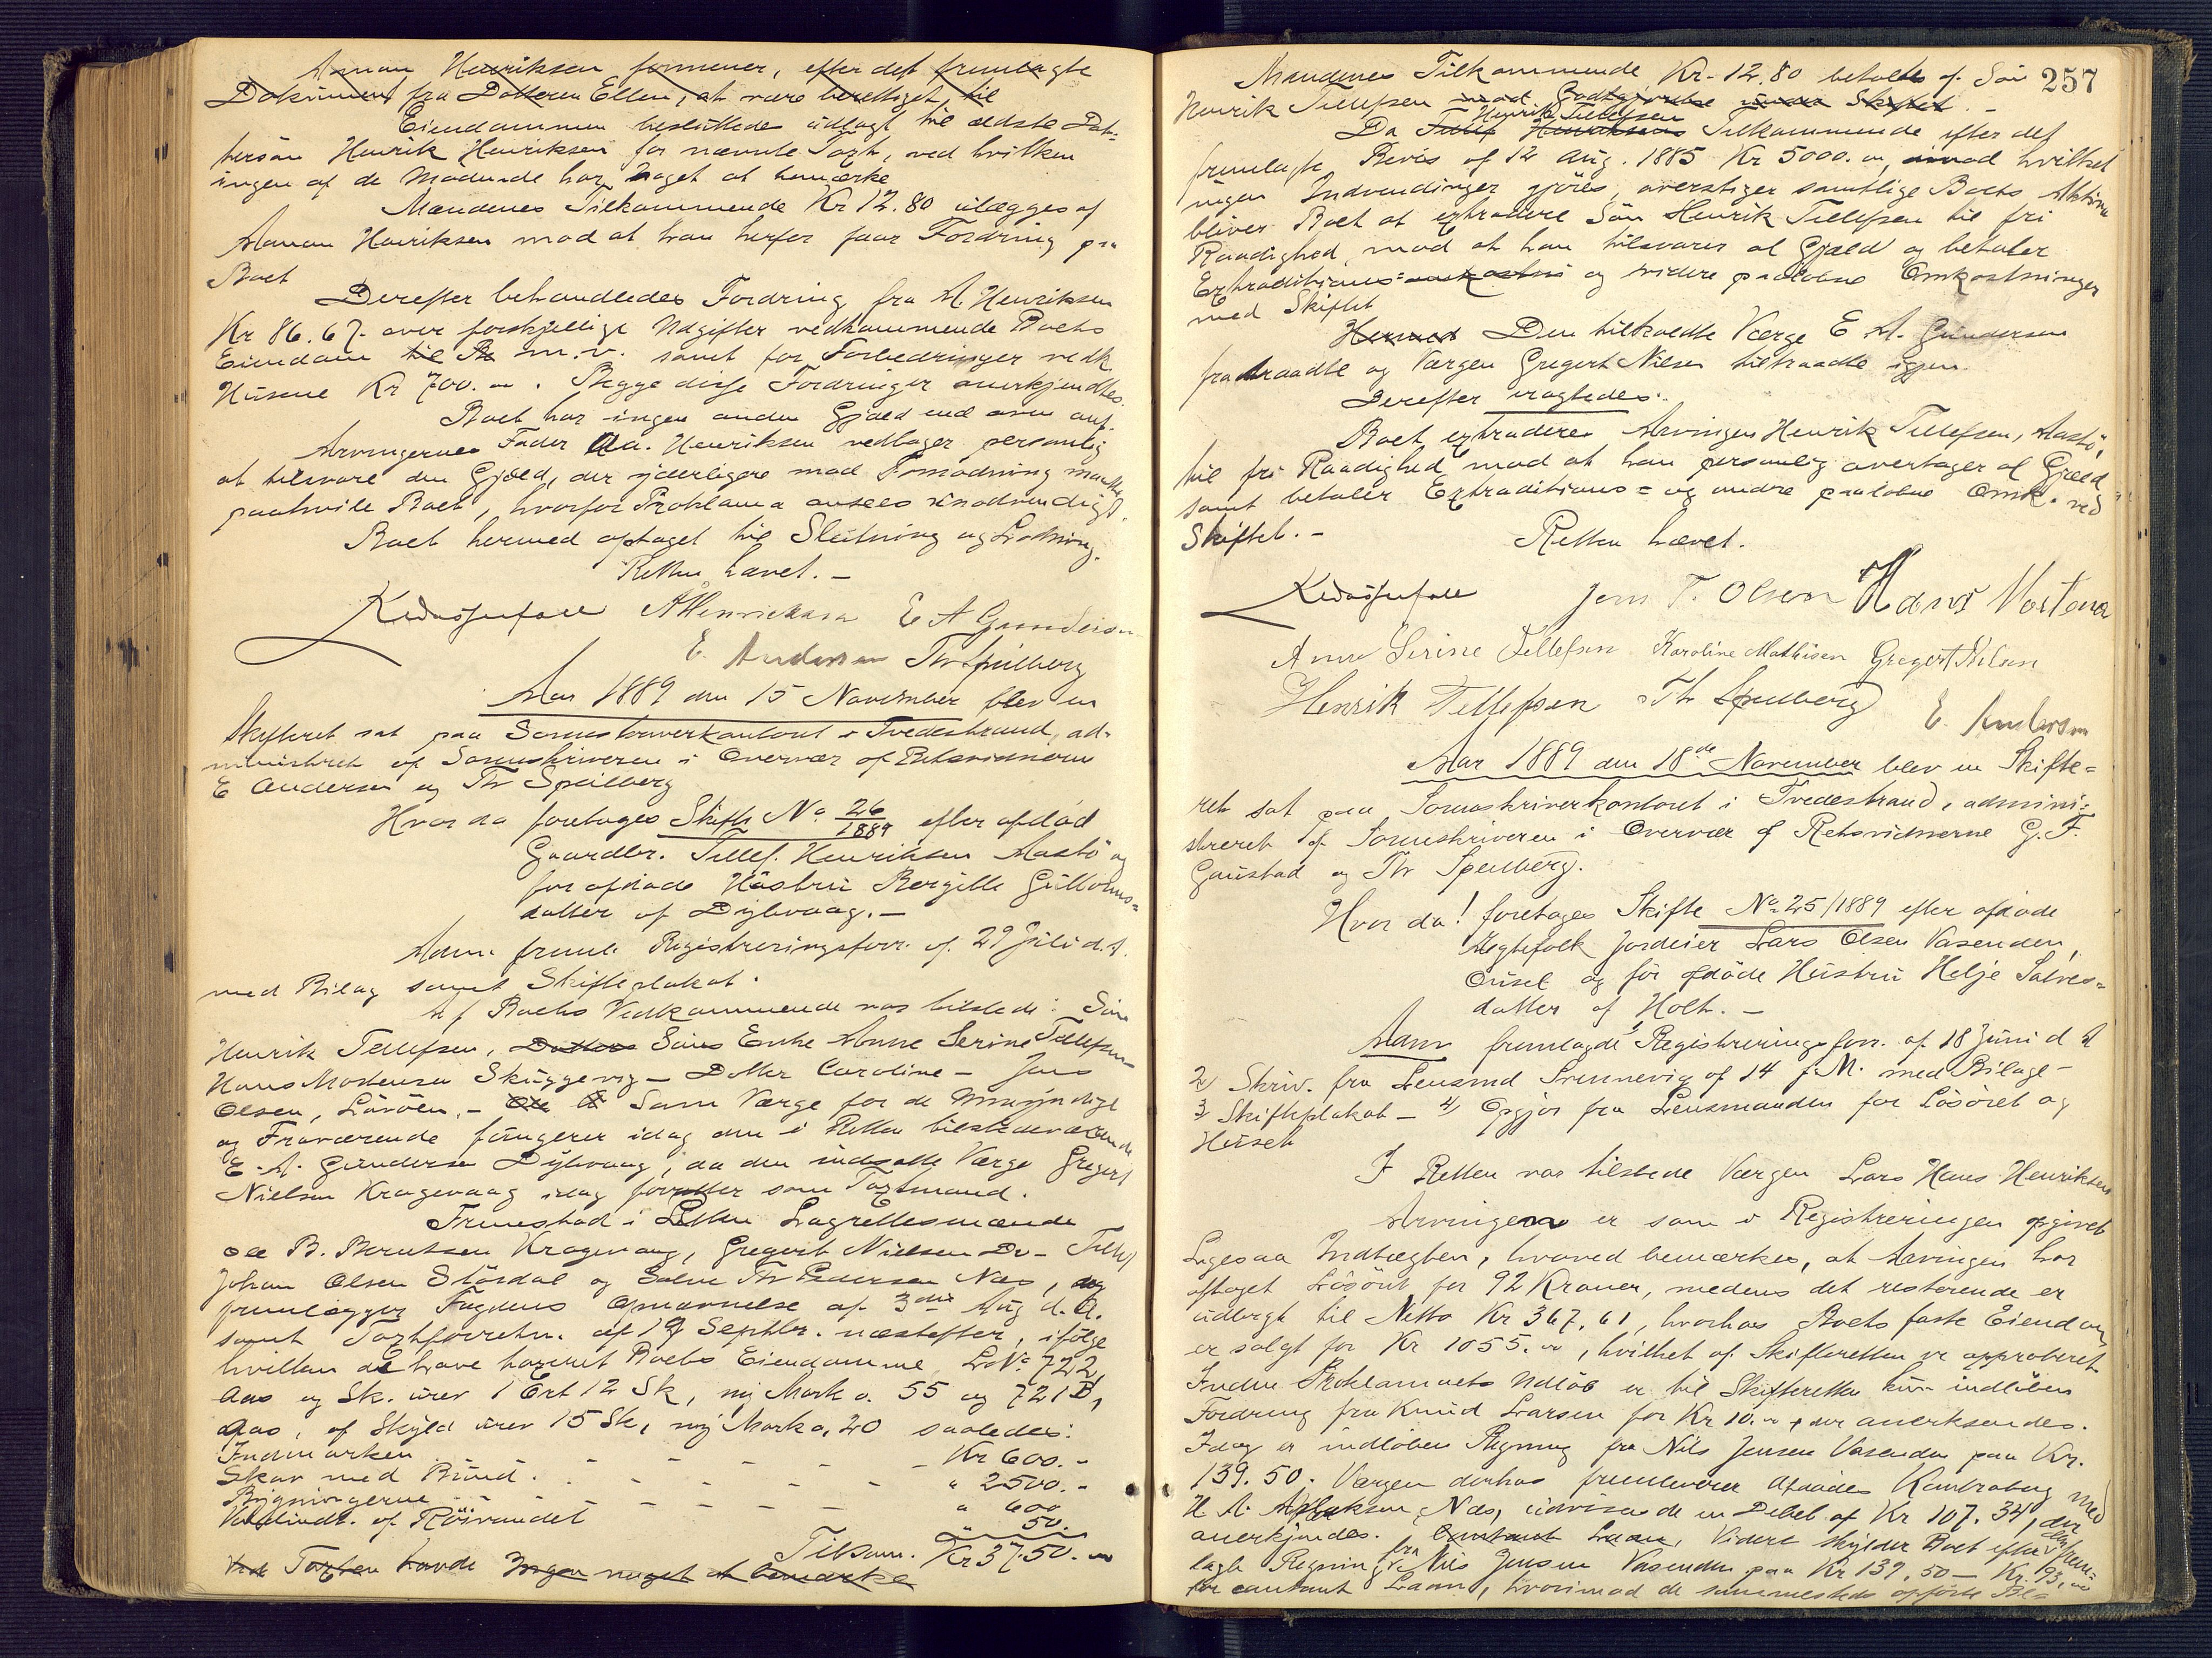 Aanon Henriksen formener, efter det fremlagte
Dokument fra Datteren Ellen, at være berettiget til
Eiendommen besluttedes udlagt til ældste Dat-
tersøn Henrik Henriksen for nævnte Taxt, ved hvilken
ingen af de Mødende har noget at bemærke
Mændenes Tilkommende Kr 12.80 udlægges af
Aanon Henriksen mod at han herfor faar Fordring paa
Boet
Derefter behandledes Fordring fra A. Henriksen
Kr 86.67. over forskjellige Udgifter vedkommende Boets
Eiendom til Bo m.v. samt for Forbedringer vedk.
Husene Kr 700. „ . Begge disse Fordringer anerkjendtes.
Boet har ingen anden Gjæld end oven anf.
Arvingernes Fader Aa. Henriksen vedtager personlig
at tilsvare den Gjæld, der yderligere mod Formodning maatte
paahvile Boet, hvorfor Proklama ansees unødvendigt.
Boet hermed optaget til Slutning og Lodning.
Retten hævet. –
AHenriksen E A Gundersen
E. Andersen Th Speilberg
Aar 1889 den 15 November blev en
Skifteret sat paa Sorenskriverkontoret i Tvedestrand, ad-
ministreret af Sorenskriveren i Overvær af Retsvidnerne
E Andersen og Th Speilberg
Hvor da foretoges Skifte No 26/1889 efter afdød
Gaardbr. Tellef Henriksen Aastø og
før afdøde Hustru Bergitte Guttorms-
datter af Dybvaag. –
Adm. freml. Registreringsforr. af 29 Juli d. A.
med Bilag samt Skifteplakat.
Af Boets Vedkommende var tilstede: Søn
Henrik Tellefsen, Datters Søns Enke Anne Serine Tellefsen
Hans Mortensen Skuggevig – Datter Caroline – Jens
Olsen, Lövöen, – Som Værge for de Umyndige
og Fraværende fungerer idag den i Retten tilstedeværende
E. A. Gundersen Dybvaag, da den indsatte Værge Gregert
Nielsen Kragevaag idag forretter som Taxtmand.
Fremstod i Retten Lagrettesmændene
Ole B. Berntsen Kragevaag, Gregert Nielsen Do – Tellef
Johan Olsen Stórdal og Salve Th Pedersen Næs, og
fremlægger Fogdens Opnævnelse af 3die Aug d. A.
samt Taxtforretn. af 19 Septbr. næstefter, ifølge
hvilken de have taxeret Boets Eiendomme LNo 722,
Aas og Sk. urev 1 Ort 12 Sk, ny Mark o. 55 og 721 B,
Aas, af Skyld urev 15 Sk, ny Mark o, 20 saaledes:
Indmarken – – – – – Kr 600. –
Skov med Bund. – – – – – „ 2500. –
Bygningerne – – – – – „ 600
af Röisvandet „ 50.
Tilsam. Kr 3750. „
Ved Taxten havde Ingen noget at bemærke
257
Mændenes Tilkommende Kr. 12.80 betaltes af Søn
Henrik Tellefsen mod Godtgjørelse under Skiftet. –
Henrik Tellefsen
Da Tellef Henriksens Tilkommende efter det
fremlagte Bevis af 12 Aug. 1885 Kr 5000. „, imod hvilket
ingen Indvendinger gjøres, overstiger samtlige Boets Aktiva
bliver Boet at extradere Søn Henrik Tellefsen til fri
Raadighed, mod at han tilsvarer al Gjæld og betaler
Extraditions- omkostn og videre paaløbne Omkostninger
med Skiftet
Hermed Den tilkaldte Værge E A. Gundersen
fratraadte og Værgen Gregert Nilsen tiltraadte igjen.
Derefter eragtedes:
Boet extraderes Arvingen Henrik Tellefsen, Aastø,
til fri Raadighed mod at han personlig overtager al Gjæld
samt betaler Extraditions- og andre paaløbne Omk. ved
Skiftet. –
Retten hævet.
Jens T. Olsen Hans Mortensen
Anne Serine Tellefsen Karoline Mathisen Gregert Nilsen
Henrik Tellefsen Th Speilberg E. Andersen
Aar 1889 den 18de November blev en Skifte-
ret sat paa Sorenskriverkontoret i Tvedestrand, admini-
streret af Sorenskriveren i Overvær af Retsvidnerne G. F.
Gaustad og Th Speilberg.
Hvor da! foretoges Skifte No 25/1889 efter afdøde
Ægtefolk Jordeier Lars Olsen Vasenden,
og før afdøde Hustru Helje Salves-
datter af Holt. –
Adm fremlagde 1, Registreringsforr. af 18 Juni d A
2, Skriv. fra Lensmd Svennevig af 14 f. M. med Bilage –
3, Skifteplakat – 4, Opgjør fra Lensmanden for Løsøret og
Huset
I Retten var tilstede Værgen Lars Hans Henriksen
Arvingerne er som i Registreringen opgivet
Ligesaa Indtægten, hvorved bemærkes, at Arvingen har
aftaget Løsöre for 92 Kroner, medens det resterende er
udbragt til Netto Kr 367.61, hvorhos Boets faste Eiendom
er solgt for Kr 1055. „, hvilket af Skifteretten er approberet
Inden Proklamaets Udløb er til Skifteretten kun indløben
Fordring fra Knud Larsen for Kr 10. „, der anerkjendes.
Idag er indløben Regning fra Nils Jensen Vasenden paa Kr.
139.50. Værgen derhos fremleverer Afdødes Kontrabog med
H A. Næs, udvisende en Debet af Kr 107.34, der
anerkjendes. Contant Laan, Videre skylder Boet efter den frem-
lagte Regning fra Nils Jensen Vasenden paa Kr 139.50 – Kr. 93, „
for contant Laan, hvorimod de sammesteds opførte